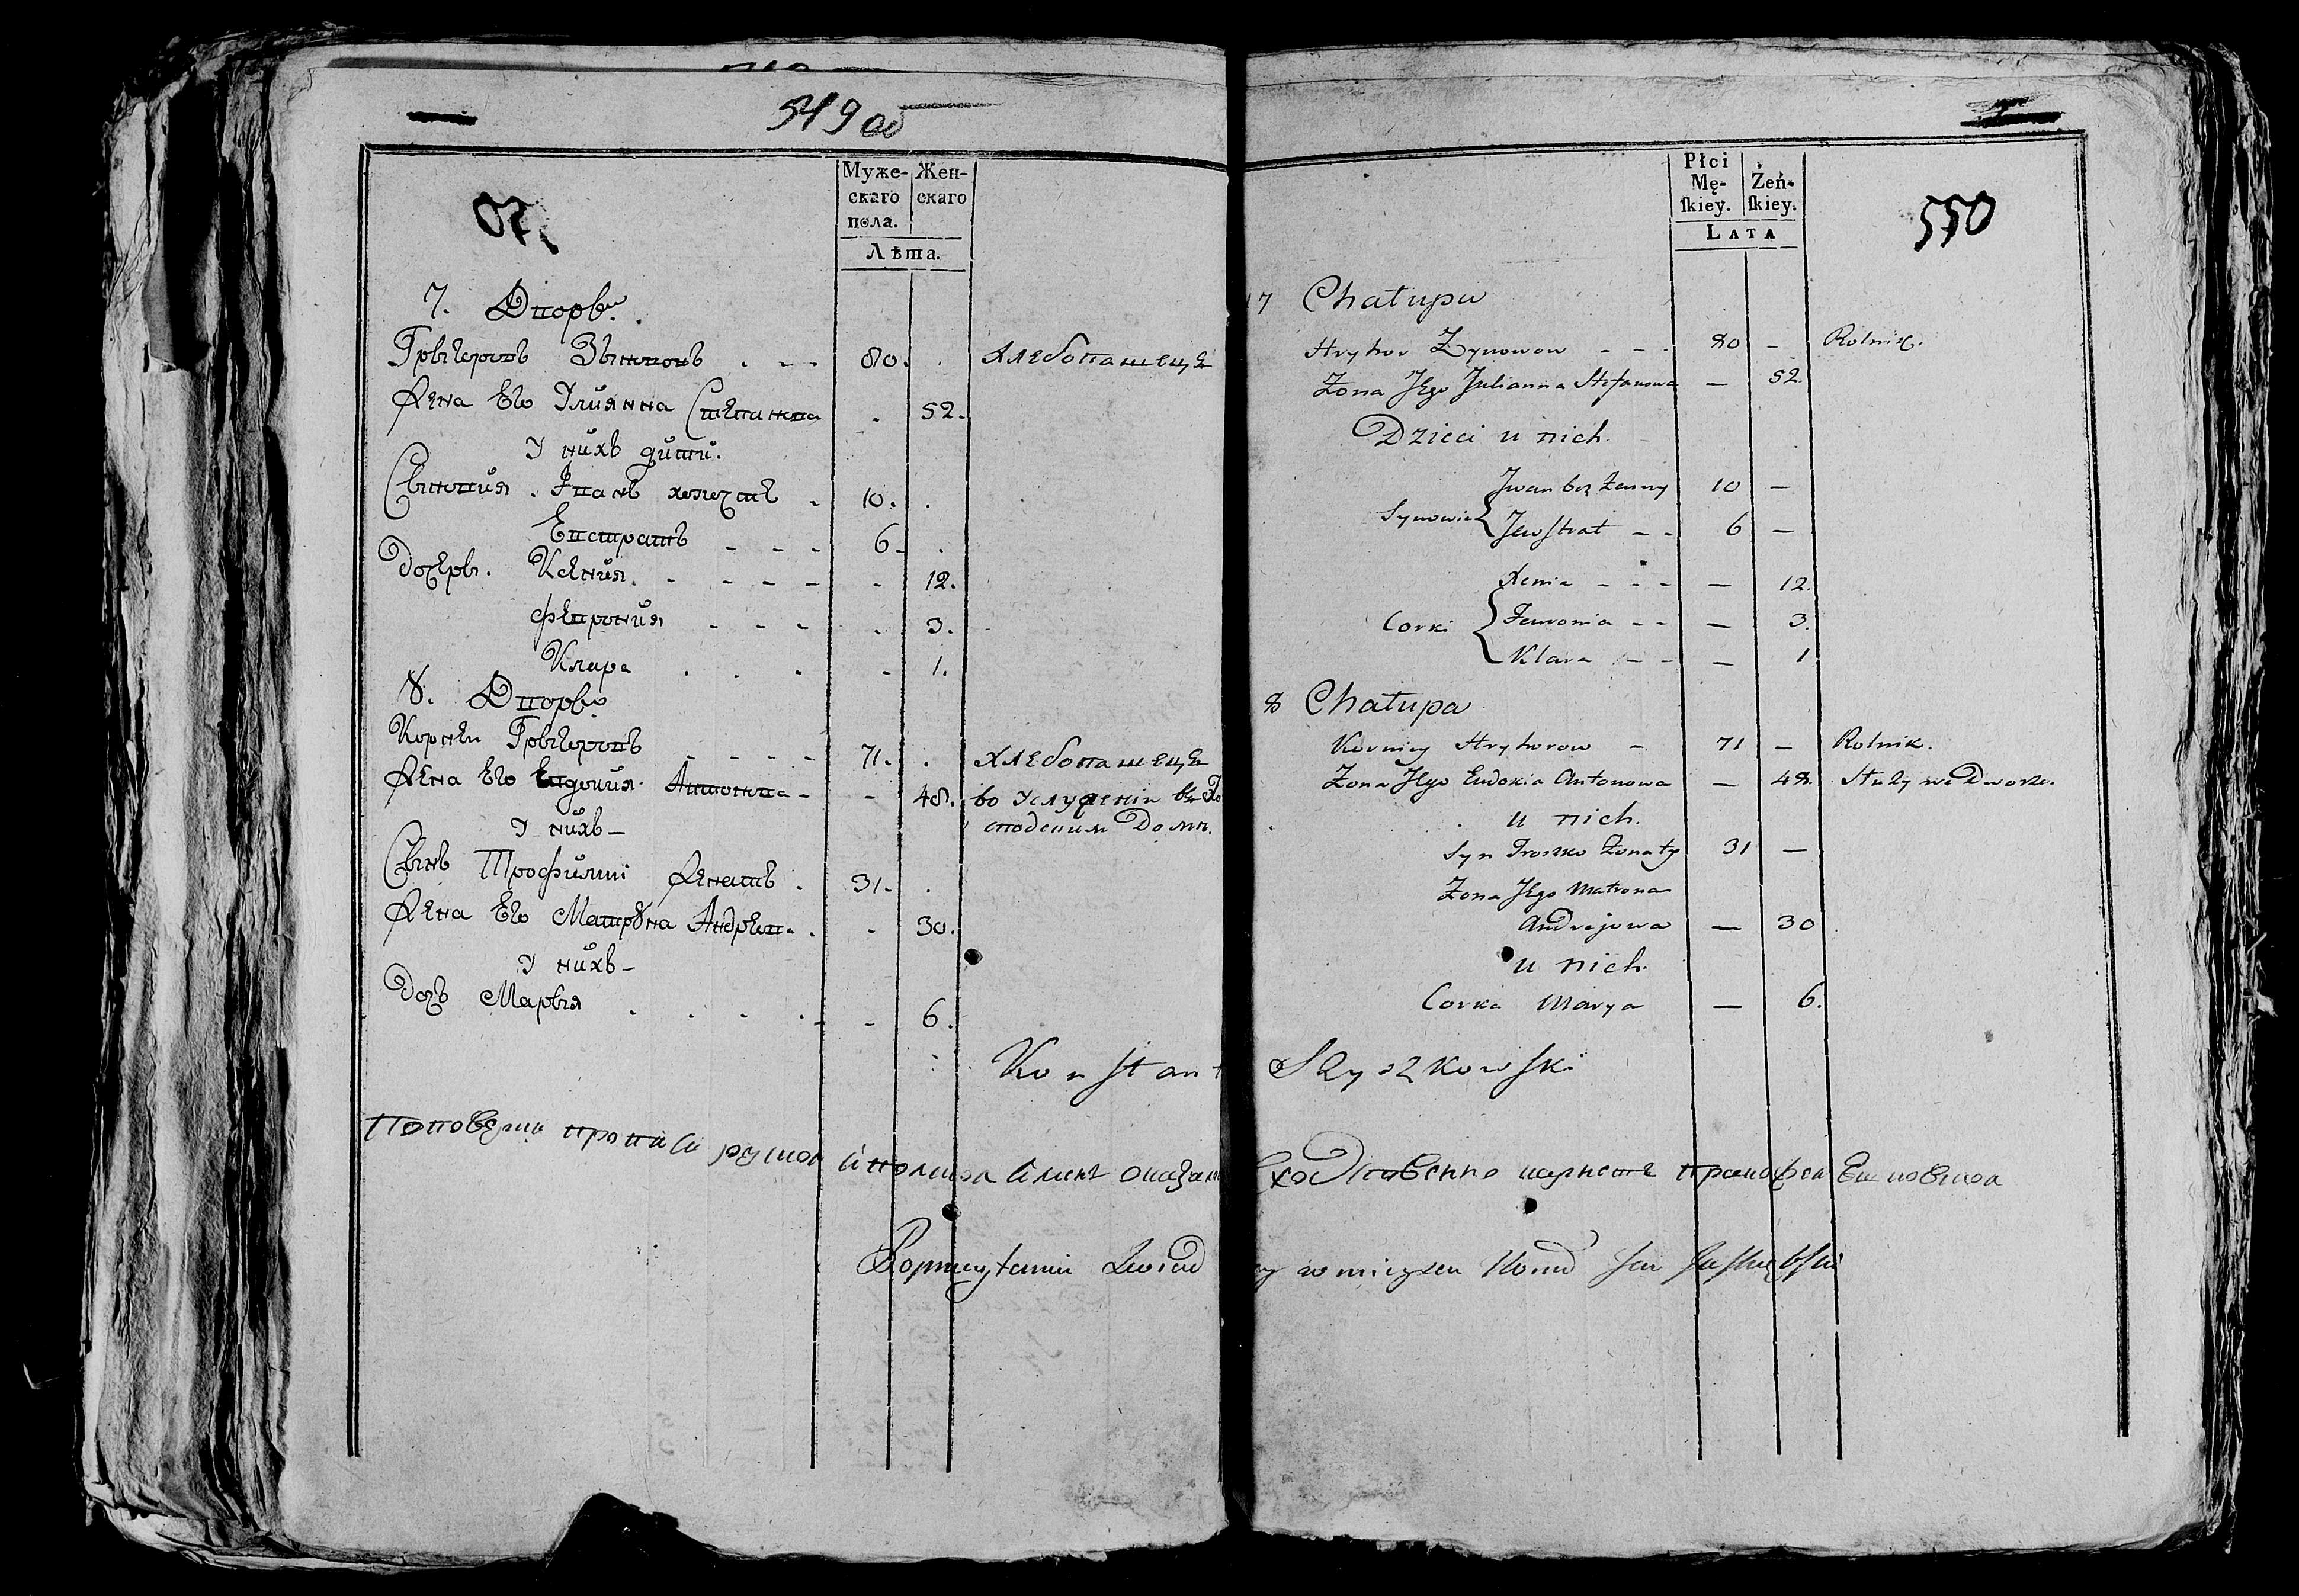 549 об
Муже-
скаго
пола.
Жен-
скаго
Лѣта.
7. Дворъ.
Грыгоровъ Зыновъ 80. Хлебопашецъ
Жена Его Улиянна Степанова 52.
У нихъ дити.
Сыновия. Иванъ холостъ 10.
Евстратъ 6.
Дочеры. Ксения. 12.
Феврония 3.
Клара 1.
8. Дворъ
Корней Грыгоровъ 71. Хлебопашецъ
Жена Его Евдокия Антонова 48. во Услужении въ Го
сподскимъ Доми.
У нихъ
Сынъ Трофимъ Женатъ. 31.
Жена Его Матрона Андреева 30.
У нихъ
Дочъ Марыя 6.
Konstant
550
Płci
Mę-
ſkiey.
Żeń-
ſkiey.
Lata
7 Chałupa
Hryhor Zynowow 80 Rolnik.
Żona Jego Julianna Stefanowa 52.
Dzieci u nich.
Synowie Jwan bez Żenny 10
Jewstrat 6
Corki Xenia 12.
Fewronia 3.
Klara 1
8 Chałupa
Korniey Hryhorow 71 Rolnik.
Żona Jego Eudokia Antonowa 48. Służy we Dworze.
u nich.
Syn Troszko Żonaty 31
Żona Jego Matrona
Andrejowa 30
u nich.
Corka Marya 6.
Skyszkowski